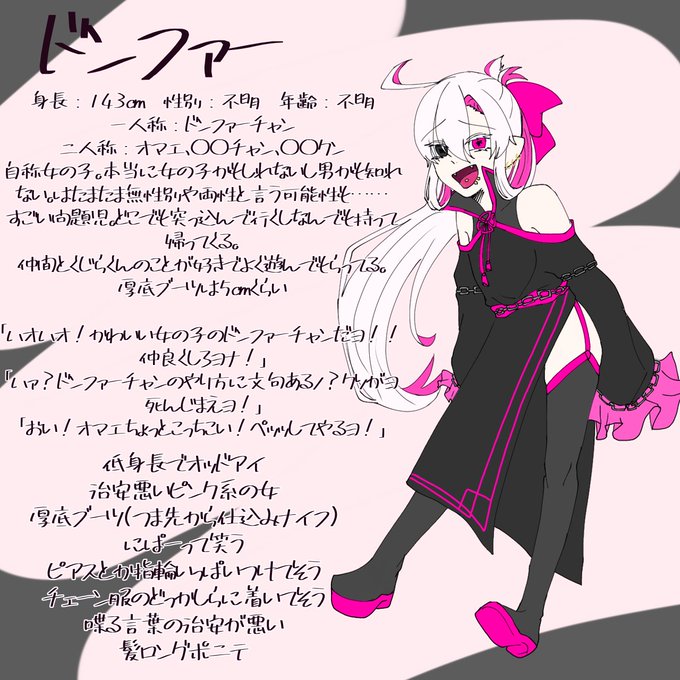 ドンファー
身長：143cm 性別：不明 年齢：不明
一人称：ドンファーチャン
二人称：オマエ、〇〇チャン、〇〇クン
自称女の子。本当に女の子かもしれないし男かも知れ
ない。はたまたま無性別や両性と言う可能性も……
すごい問題児。どこでも突っ込んで行くしなんでも持って
帰ってくる。
仲間とくじらくんのことが好きでよく遊んでもらってる。
厚底ブーツは5cmくらい
「ハオハオ！かわいい女の子のドンファーチャンだヨ！！
仲良くしろヨナ！」
「ハァ？ドンファーチャンのやり方に文句あるノ？クソがヨ
死んじまえヨ！」
「おい！オマエちょっとこっちこい！ペッッしてやるヨ！」
低身長でオッドアイ
治安悪いピンク系の女
厚底ブーツ(つま先から仕込みナイフ)
にぱーって笑う
ピアスとか指輪いっぱいつけてそう
チェーン服のどっかしらに着いてそう
喋る言葉の治安が悪い
髪ロングポニテ